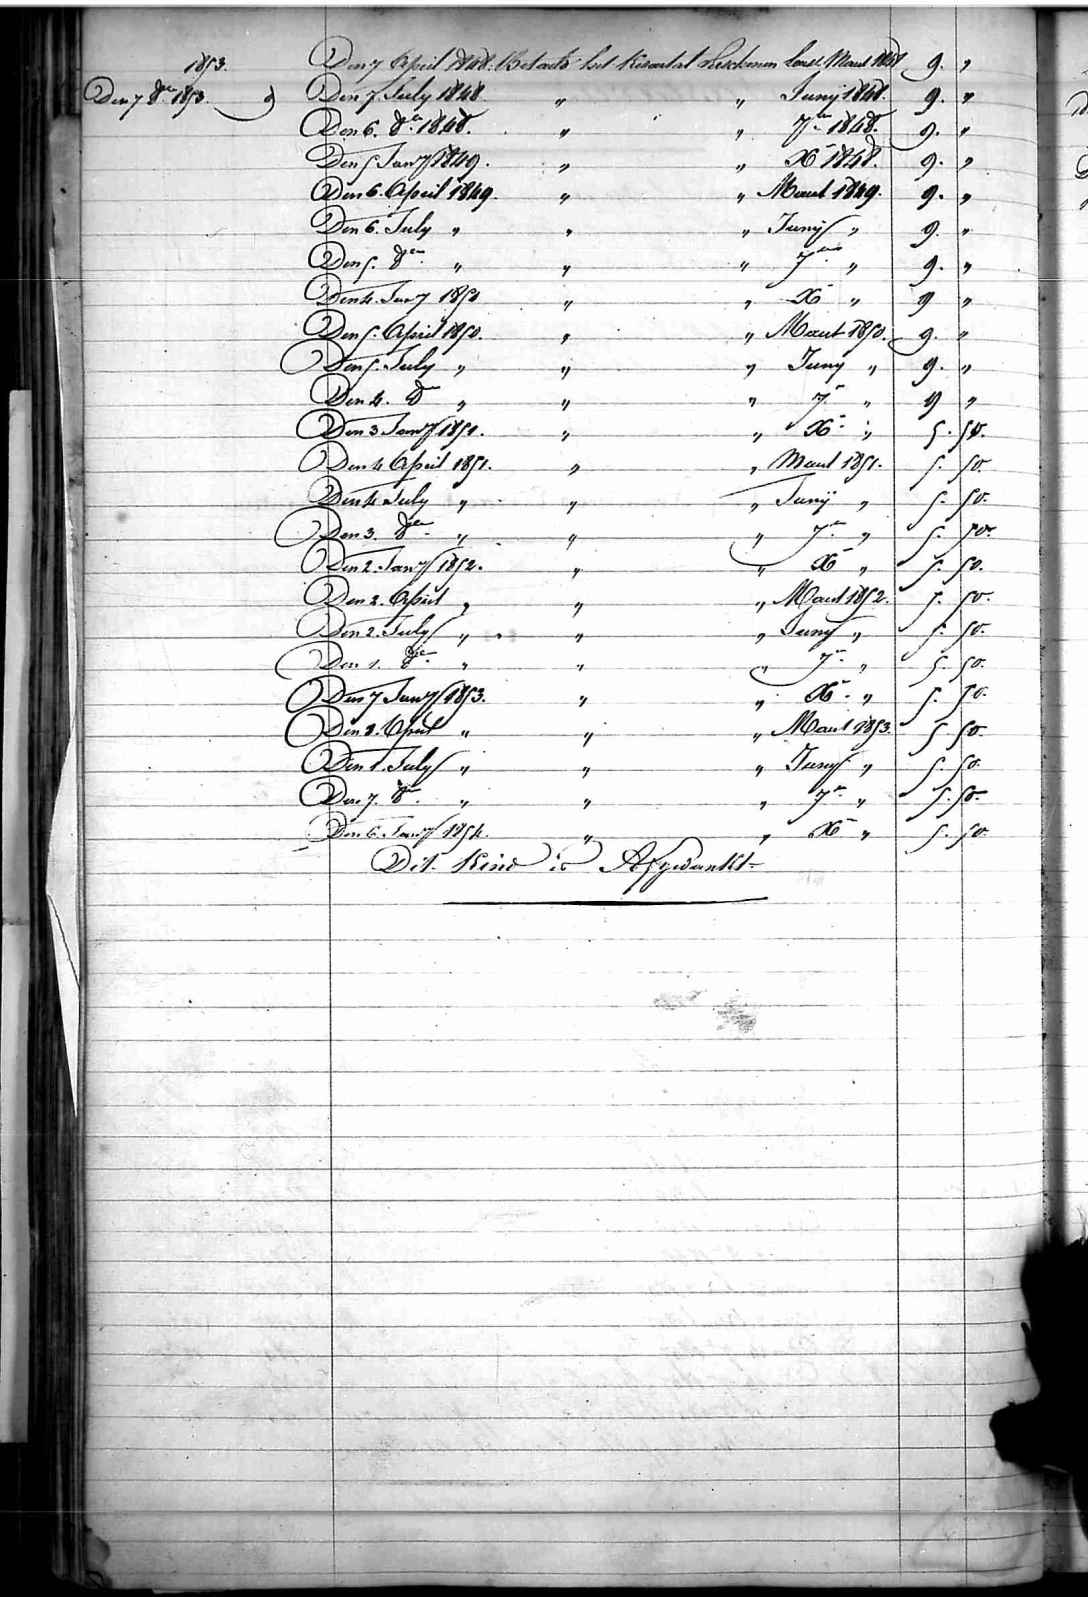 1853.
Den 7 April 1848. Betaald het Kwartal Maart 1848 9. "
Den 7 8ber 1853.
Den 7. July 1848. " " Junij 1848. 9. "
Den 6. 8er 1848. " " 7er 1848. 9. "
Den 5 Jany 1849. " " Xr 1848. 9. "
Den 6. April 1849. " " Maart 1849. 9. "
Den 6. July " " " Junij " 9. "
Den 5. 8er " " " 7er " 9. "
Den 4. Jany 1850 " " Xr " 9 "
Den 5. April 1850. " " Maart 1850. 9. "
Den 5. July " " " Juny " 9. "
Den 4. 8r " " " 7r " 9 "
Den 3 Jany 1851. " " Xr " 5. 50.
Den 4 April 1851. " " Maart 1851. 5. 50.
Den 4 July " " " Junij " 5. 50.
Den 3. 8er " " " 7er " 5. 50.
Den 2. Jany 1852. " " Xr " 5. 50.
Den 2. April " " " Maart 1852. 5. 50.
Den 2. July " " " Juny " 5. 50.
Den 1. 8er " " " 7r " 5. 50.
Den 7 Jany 1853. " " Xr " 5. 50.
Den 2. April " " " Maart 1853. 5 50.
Den 1. July " " " Juny " 5. 50.
Den 7. 8er " " " 7er " 5. 50.
Den 6. Jany 1854. " " Xr " 5. 50.
Dit Kind is Afgedankt